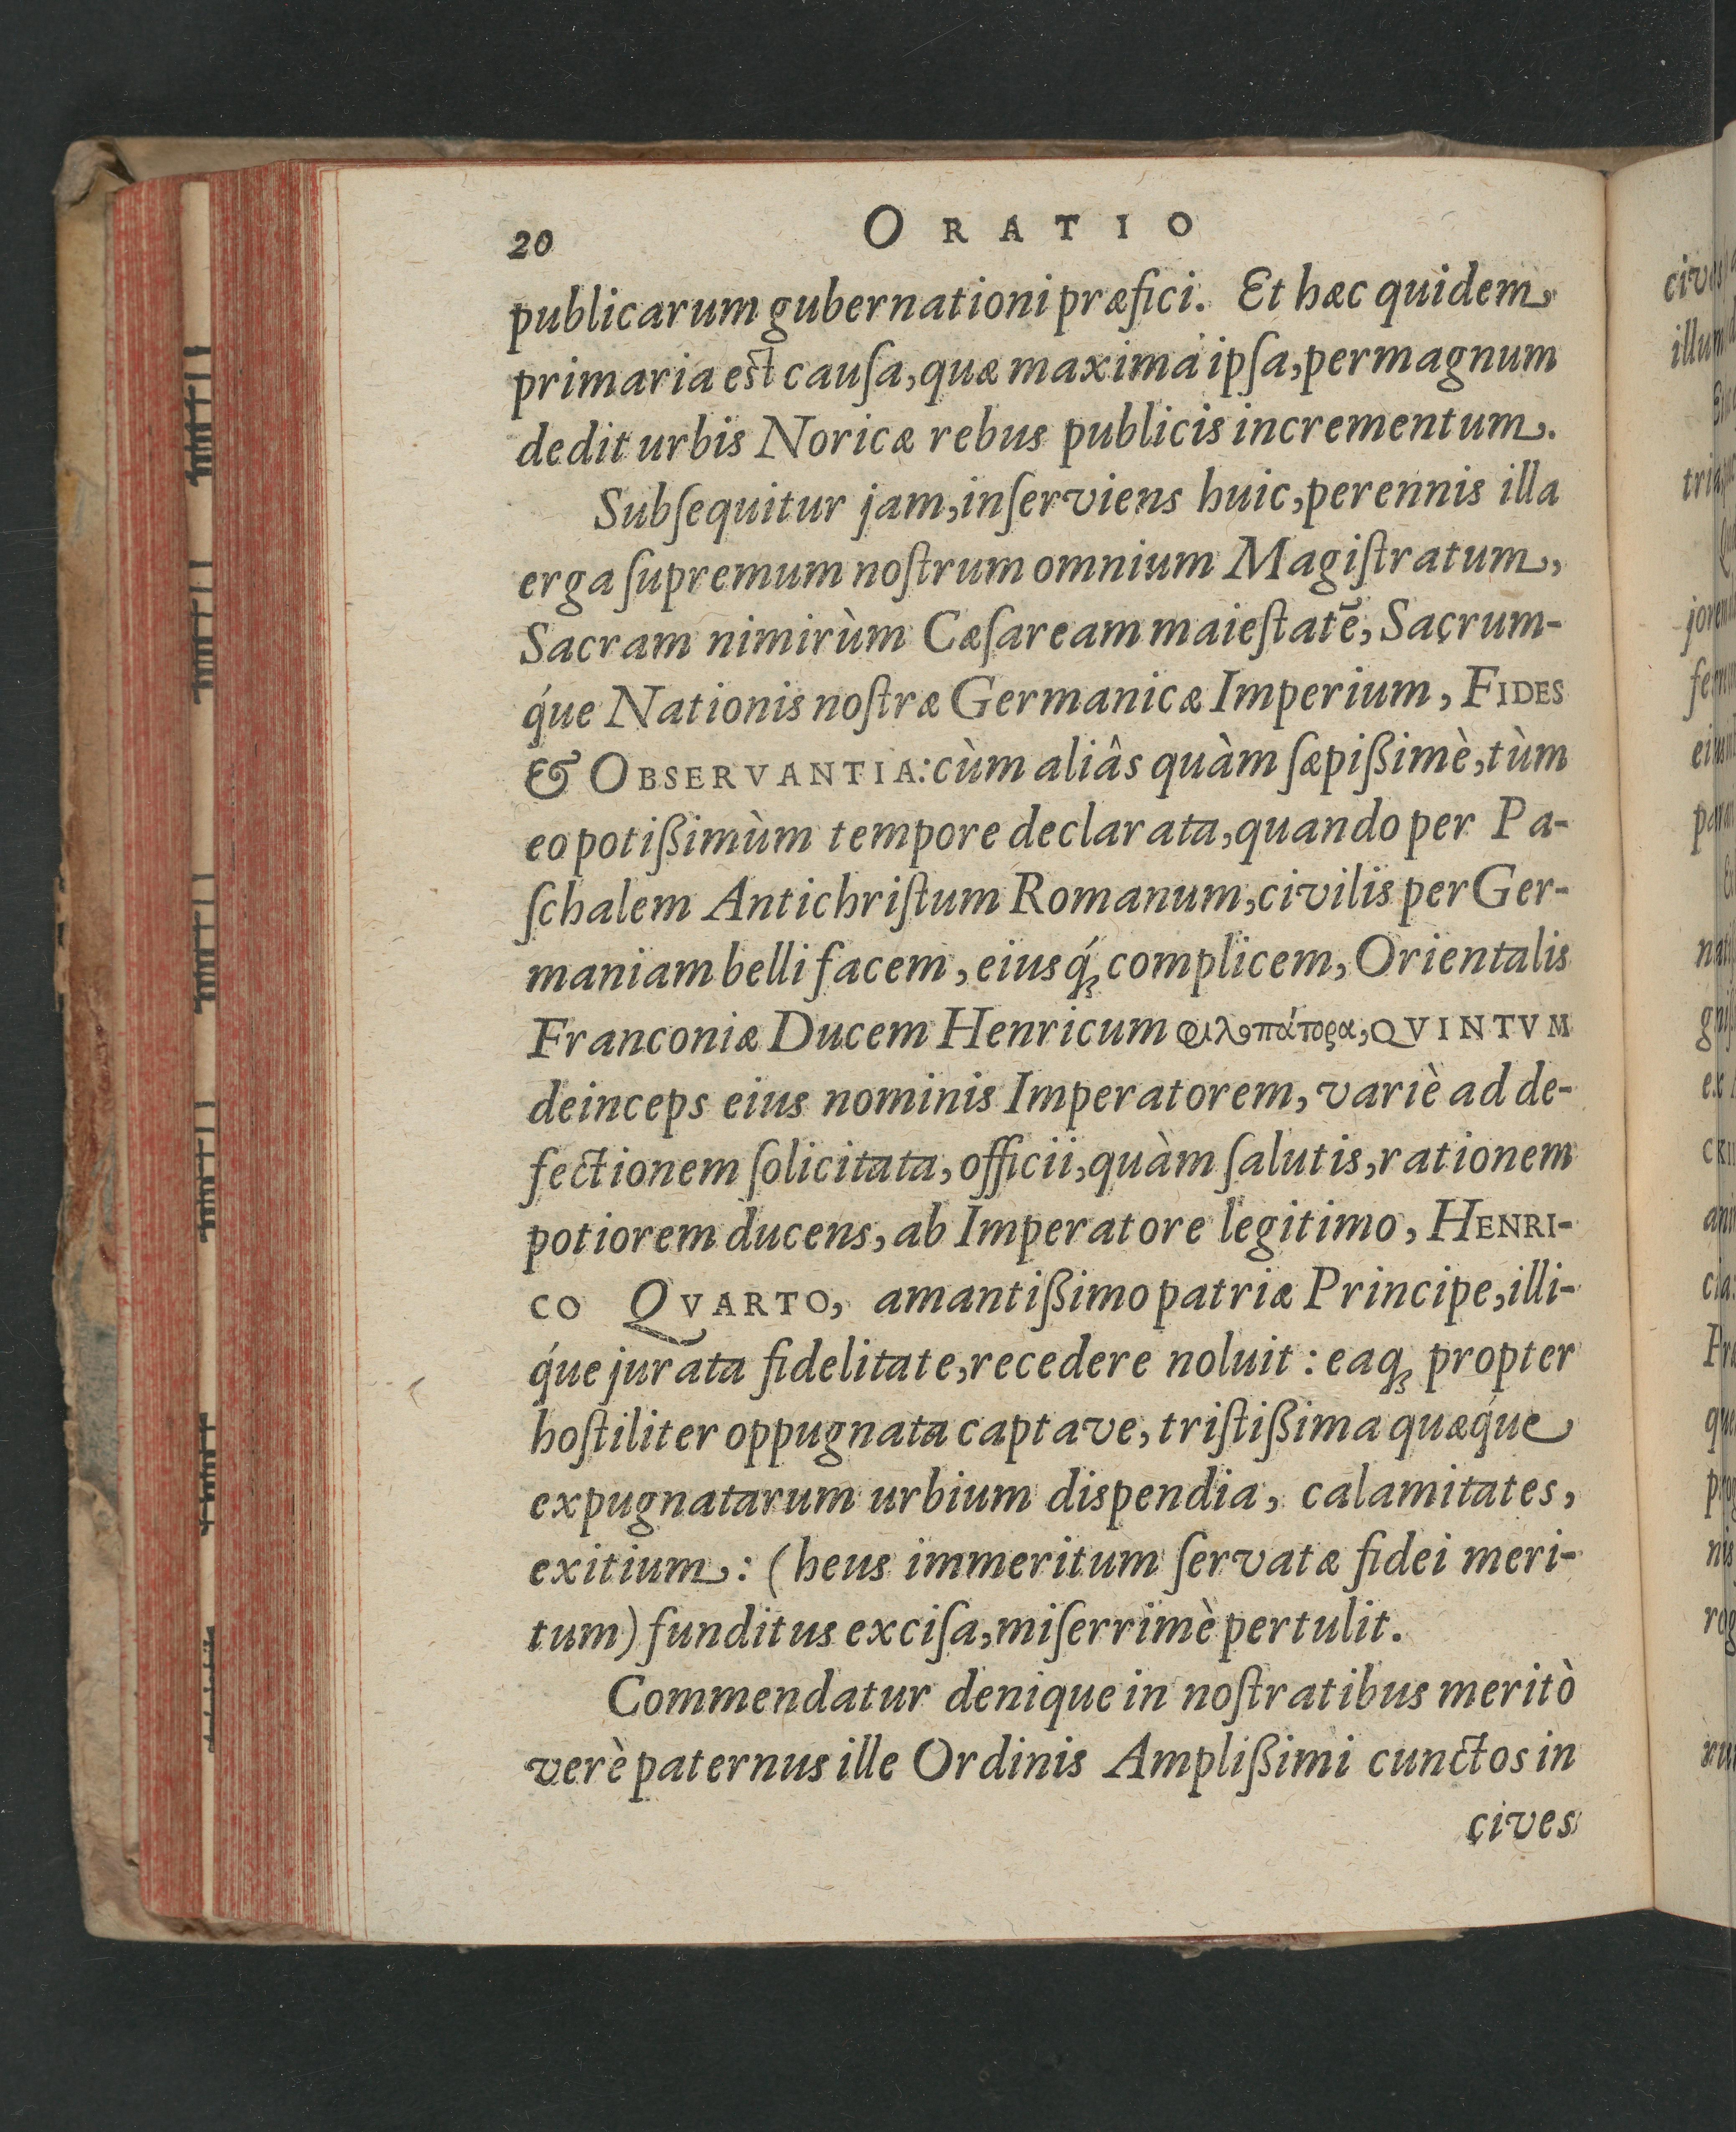 20 ORATIO
publicarum gubernationi præfici. Et hæc quidem
primaria est causa, quæ maxima ipſa, permagnum
dedit urbis Noricæ rebus publicis incrementum.
Subſequitur jam, inſerviens huic, perennis illa
erga ſupremum noſtrum omnium Magiſtratum,
Sacram nimirùm Cæſaream maieſtatē, Sacrum-
q́ue Nationis noſtræ Germanicæ Imperium, FIDES
& OBSERVANTIA: cùm aliâs quàm ſæpißimè, tùm
eo potißimùm tempore declarata, quando per Pa-
ſchalem Antichriſtum Romanum, civilis per Ger-
maniam belli facem, eiusq́; complicem, Orientalis
Franconiæ Ducem Henricum φιλοπάτορα, QVINTVM
deinceps eius nominis Imperatorem, variè ad de-
fectionem ſolicitata, officii, quàm ſalutis, rationem
potiorem ducens, ab Imperatore legitimo, HENRI-
CO QVARTO, amantißimo patriæ Principe, illi-
q́ue jurata fidelitate, recedere noluit: eaq; propter
hoſtiliter oppugnata captave, triſtißima quæq́ue
expugnatarum urbium dispendia, calamitates,
exitium: (heus immeritum ſervatæ fidei meri-
tum) funditus exciſa, miſerrimè pertulit.
Commendatur denique in noſtratibus meritò
verè paternus ille Ordinis Amplißimi cunctos in
cives